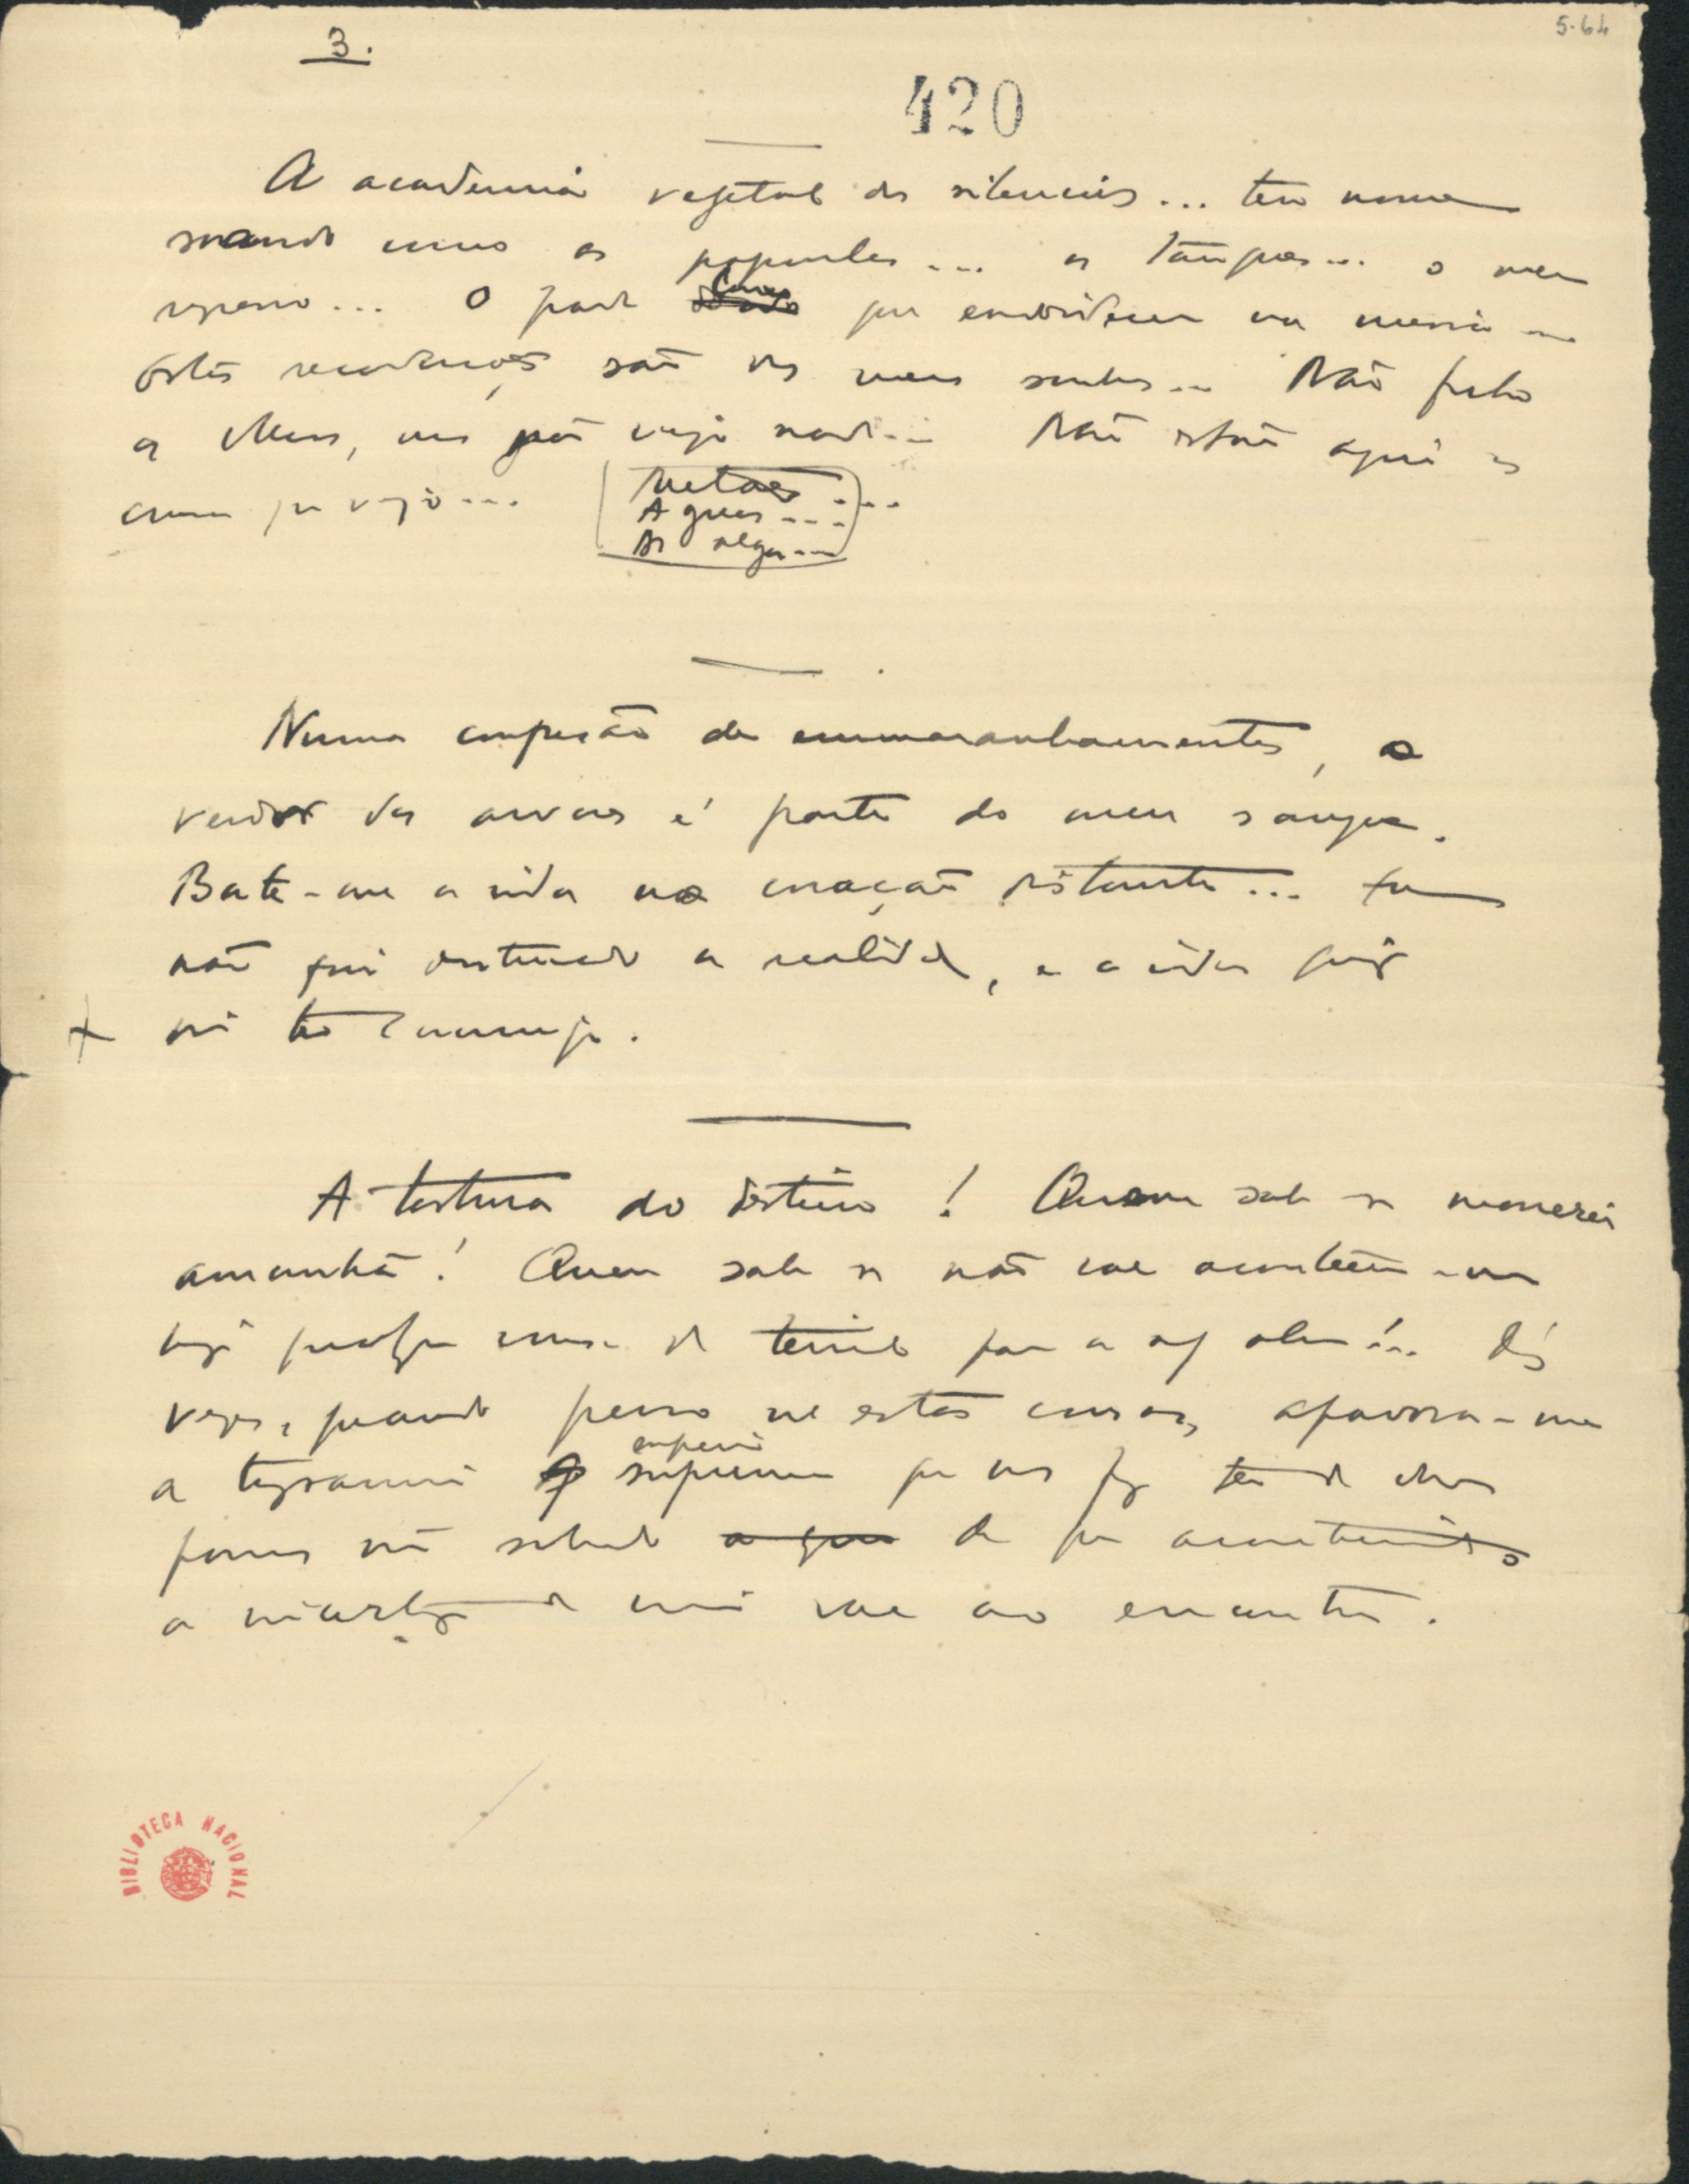 3.
5-64
420
A academia vegetal dos silencios... teu nome
soando como as papoulas... os tanques... o meu
regresso... O padre louco que endoideceu na missa...
Estas recordações são dos meus sonhos... Não fecho
os olhos, mas não vejo nada... Não estão aqui as
cousas que vejo...
Aguas...
Numa confusão de emmaranhamentos, o
verdor das arvores é parte do meu sangue.
Bate-me a vida no coração distante... Eu
não fui destinado á realidade, e a vida quiz
vir ter commigo.
A tortura do destino! Quem sabe se morrerei
amanhã! Quem sabe se não vae acontecer-me
hoje qualquer cousa de terrivel para a m/ alma!... Ás
vezes, quando penso n'estas cousas, apavora-me
a tyrannia suprema que nos faz ter de dar
passos não sabendo de que acontecimento
a incerteza de mim vae ao encontro.
BIBLIOTECA NACIONAL